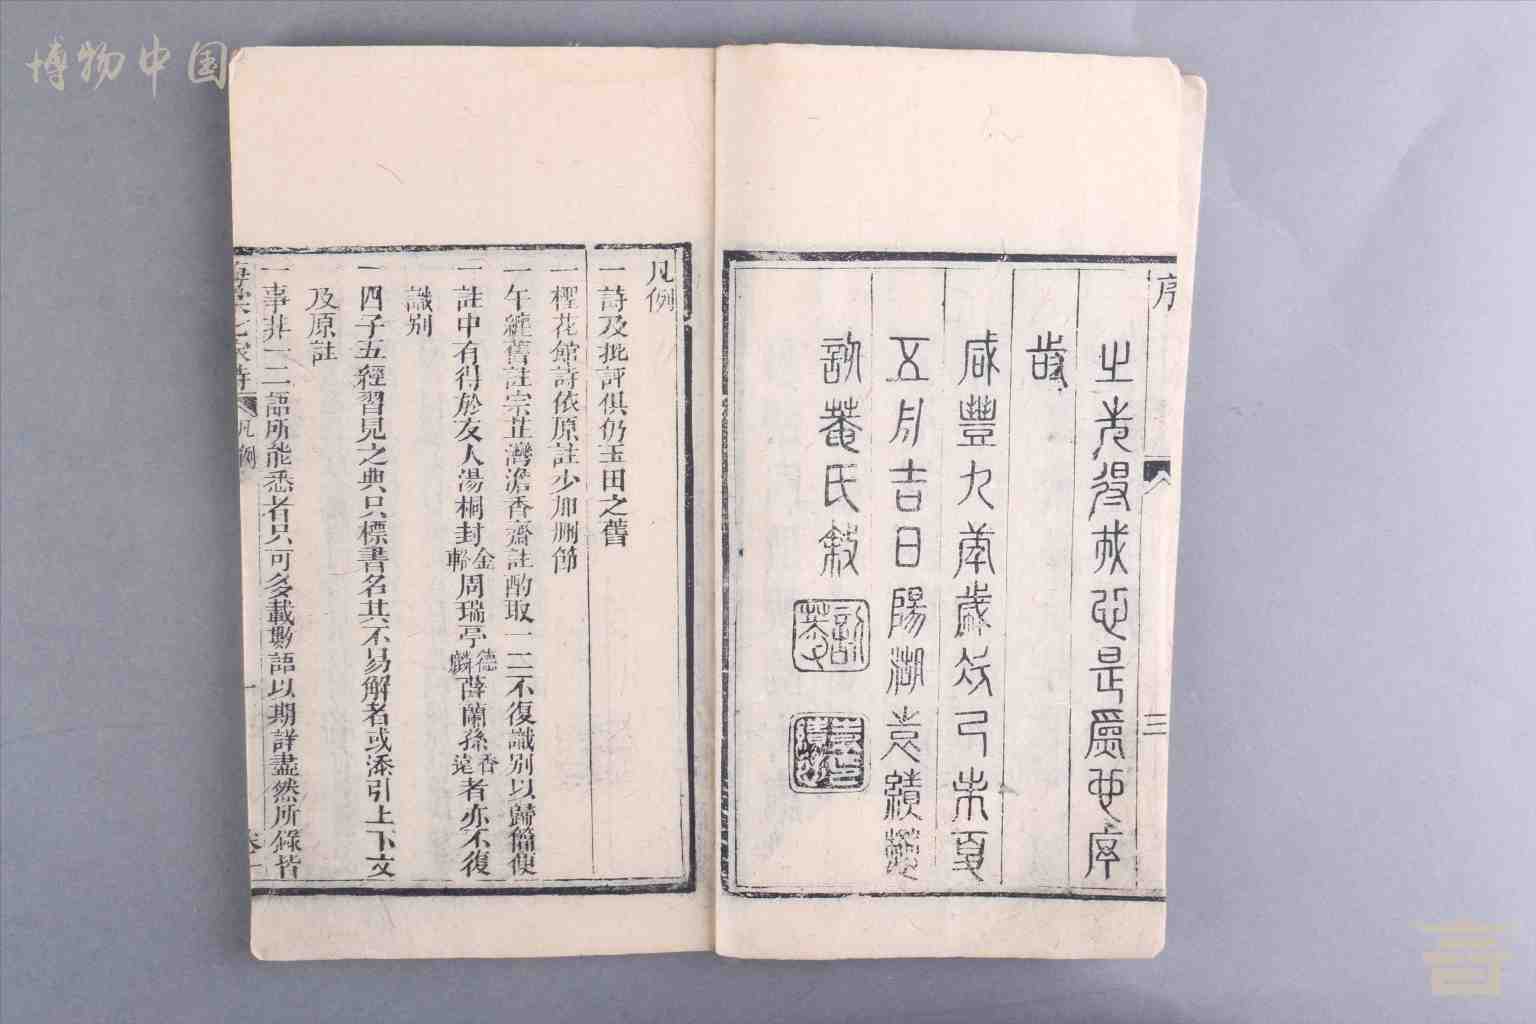 博物中国
序 三
之先得我心是爲序
旹
咸豐九年歲次己未夏
五月吉日陽湖袁績懋
訒菴氏敘
訒菴
袁績懋印
凡例
一詩及批評俱仍玉田之舊
一檉花館詩依原註少加刪節
一午纏舊註宗芷灣澹香齋註酌取一二不復識别以歸簡便
一註中有得於友人湯桐封金周瑞亭德麟薛蘭孫香遠者亦不復
識别
一四子五經習見之典只標書名其不易解者或添引上下文
及原註
一事非一二語所能悉者只可多載數語以期詳盡然所錄皆
七家詩 凡例 一